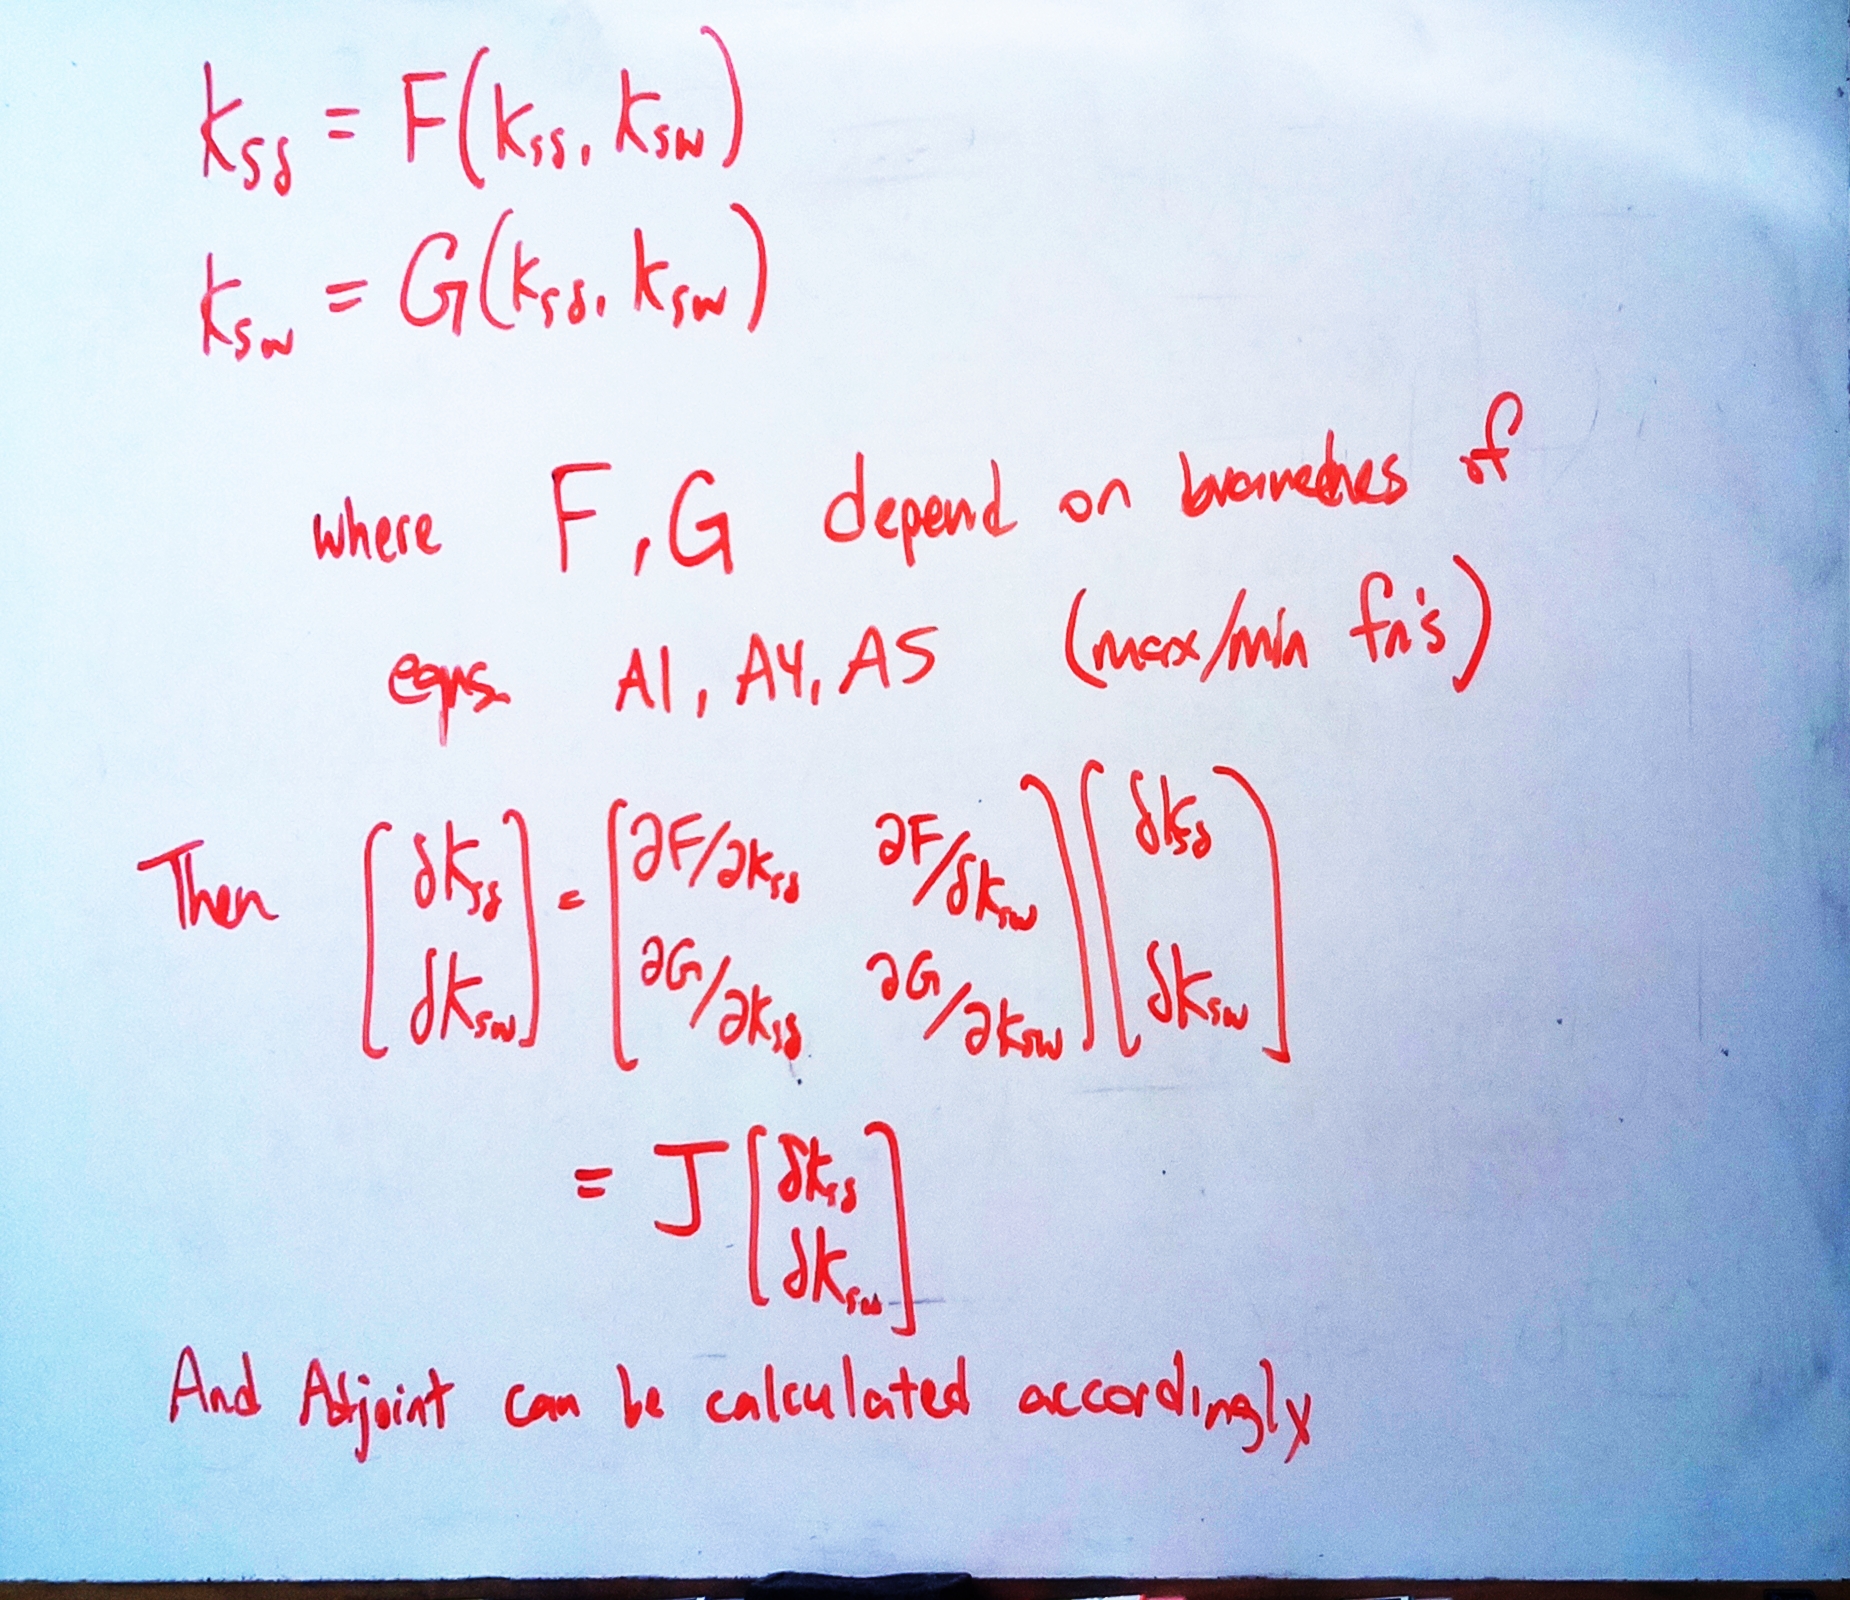 ksδ = F(kss, ksw)
ksw = G(ksδ, ksw)
where F, G depend on branches of
eqns. A1, A4, A5 (max/min fn's)
Then [δksδ δksw] = [∂F/∂ksδ ∂F/δksw ∂G/∂ksδ ∂G/∂ksw] [δksδ δksw]
= J [δksδ δksw]
And Adjoint can be calculated accordingly